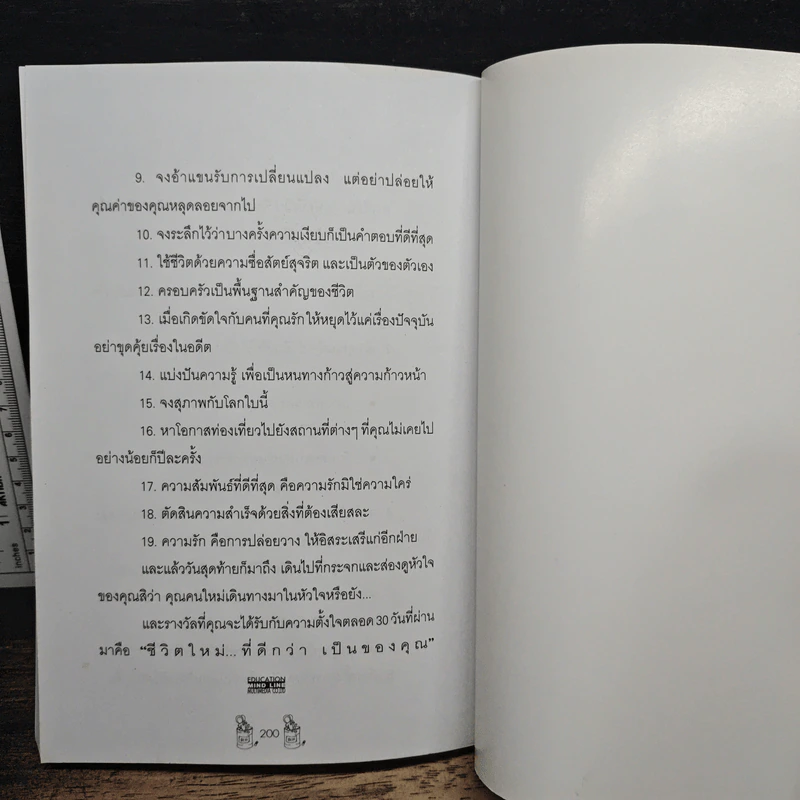 9. จงอ้าแขนรับการเปลี่ยนแปลง แต่อย่าปล่อยให้
คุณค่าของคุณหลุดลอยจากไป
10. จงระลึกไว้ว่าบางครั้งความเงียบก็เป็นคำตอบที่ดีที่สุด
11. ใช้ชีวิตด้วยความซื่อสัตย์สุจริต และเป็นตัวของตัวเอง
12. ครอบครัวเป็นพื้นฐานสำคัญของชีวิต
13. เมื่อเกิดขัดใจกับคนที่คุณรัก ให้หยุดไว้แค่เรื่องปัจจุบัน
อย่าขุดคุ้ยเรื่องในอดีต
14. แบ่งปันความรู้ เพื่อเป็นหนทางก้าวสู่ความก้าวหน้า
15. จงสุภาพกับโลกใบนี้
16. หาโอกาสท่องเที่ยวไปยังสถานที่ต่างๆ ที่คุณไม่เคยไป
อย่างน้อยก็ปีละครั้ง
17. ความสัมพันธ์ที่ดีที่สุด คือความรักมิใช่ความใคร่
18. ตัดสินความสำเร็จด้วยสิ่งที่ต้องเสียสละ
19. ความรัก คือการปล่อยวาง ให้อิสระเสรีแก่อีกฝ่าย
และแล้ววันสุดท้ายก็มาถึง เดินไปที่กระจกและส่องดูหัวใจ
ของคุณสิว่า คุณคนใหม่เดินทางมาในหัวใจหรือยัง...
และรางวัลที่คุณจะได้รับกับความตั้งใจตลอด 30 วันที่ผ่าน
มาคือ “ชีวิตใหม่... ที่ดีกว่า เป็นของคุณ”
EDUCATION
MIND LINE
200
inches